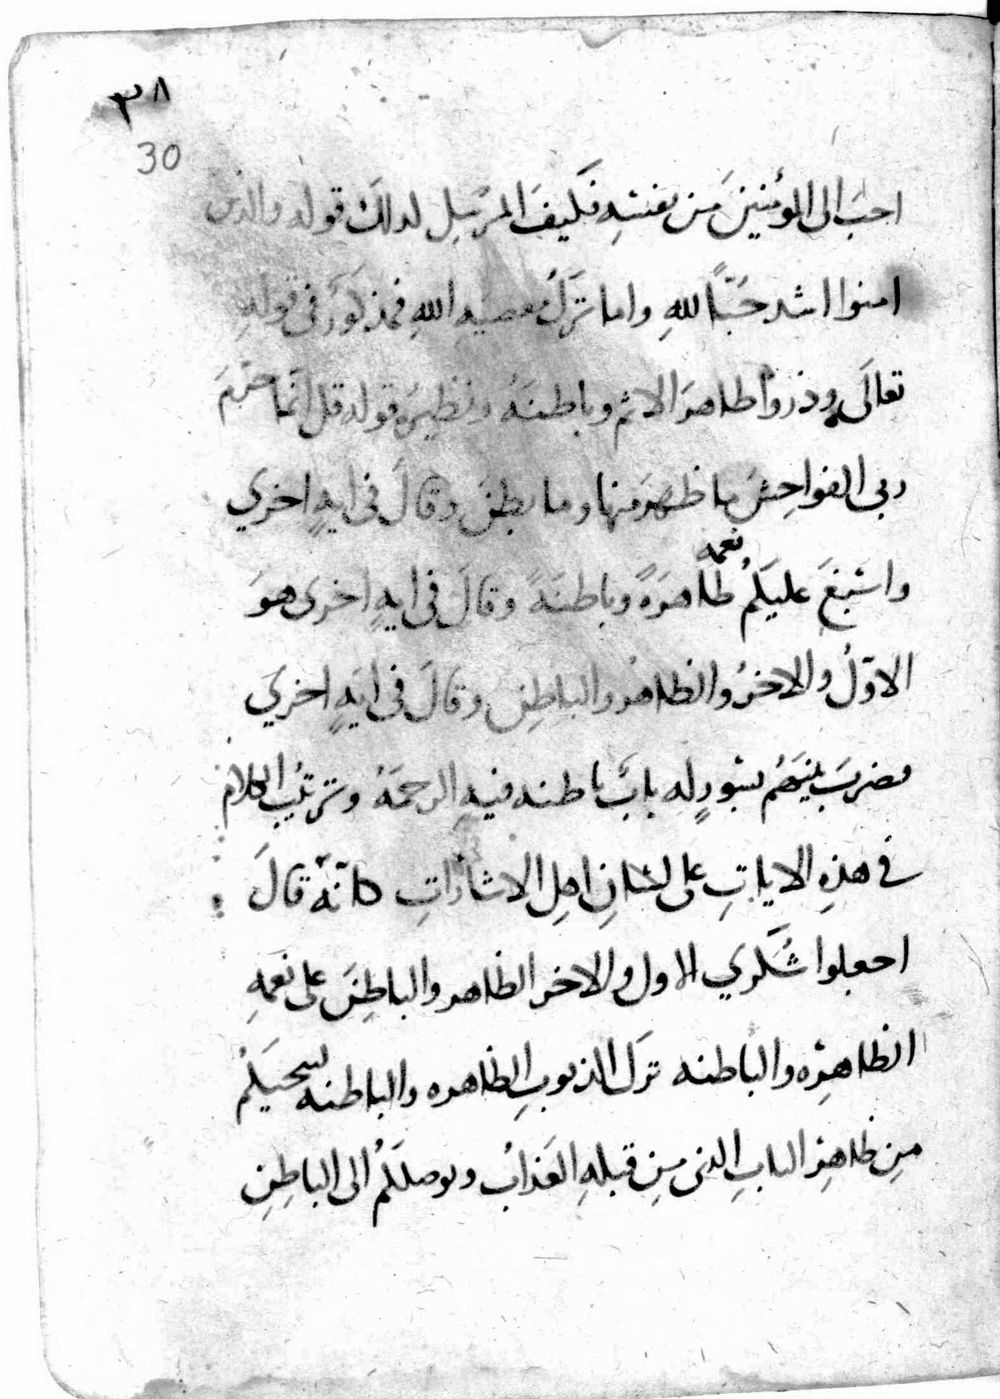 ٣٨
30
احب الى المؤمنين من نفسه فكيف المرسل لذلك قوله والذين
امنوا اشد حُبّاً للهِ واما تركُ معصيه اللهِ فمذكورٌ فى قولهِ
تعالَى وذروا ظاهرَ الاثم وباطنَهُ ونظيرَه قوله قل انما حرّمَ
ربى الفواحِشَ ما ظهرَ منها وما بطنَ وقالَ فى ايهٍ اخري
واسْبغَ عليكمُ نعمه ظاهرَةً وباطنَةً وقالَ فى ايهٍ اخرى هوَ
الاوّلُ والاخرُ والظاهرُ والباطِن وقالَ فى ايهٍ اخري
فضربَ بينَهُم بسُورٍ له بابٌ باطنه فيهِ الرحمَهُ وترتيبُ الكلام
فى هذِهِ الاياتِ على لسَانِ اهلِ الاشاراتِ كانّهُ قالَ
اجعلوا شُكري الاول والاخر الظاهر والباطِنَ على نعمهِ
الظاهِرَه والباطنه تركَ الذنوبِ الظاهره والباطنه لينجيكمُ
مِن ظاهِرِ البابِ الذى مِن قبلهِ العَذابُ ويوصلكمُ الى الباطِنِ